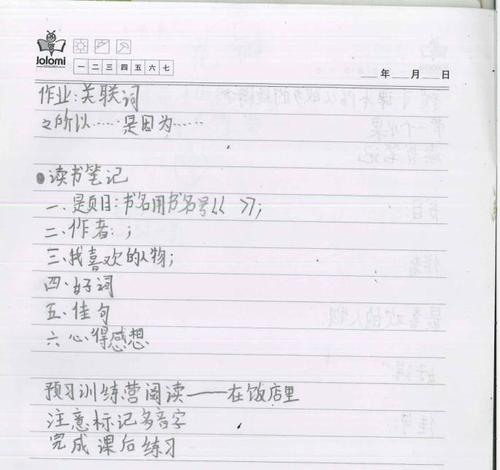 Jolomi
一 二 三 四 五 六 七
年 月 日
作业:关联词
之所以……是因为……
读书笔记
一、题目:书名用书名号《 》;
二、作者:;
三、我喜欢的人物;
四、好词
五、佳句
六、心得感想
预习训练营阅读——在饭店里
注意标记多音字
完成课后练习